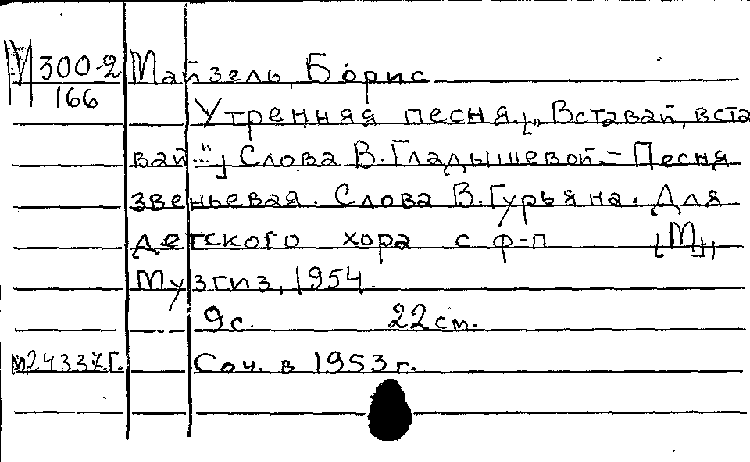 М 300-2 Майзель, Борис
166
Утренняя песня. [„Вставай, вста
вай..."] Слова В. Гладышевой. – Песня
звеньевая. Слова В. Гурьяна. Для
детского хора с ф-п [М.],
Музгиз, 1954
9 с. 22 см.
Соч. в 1953 г.